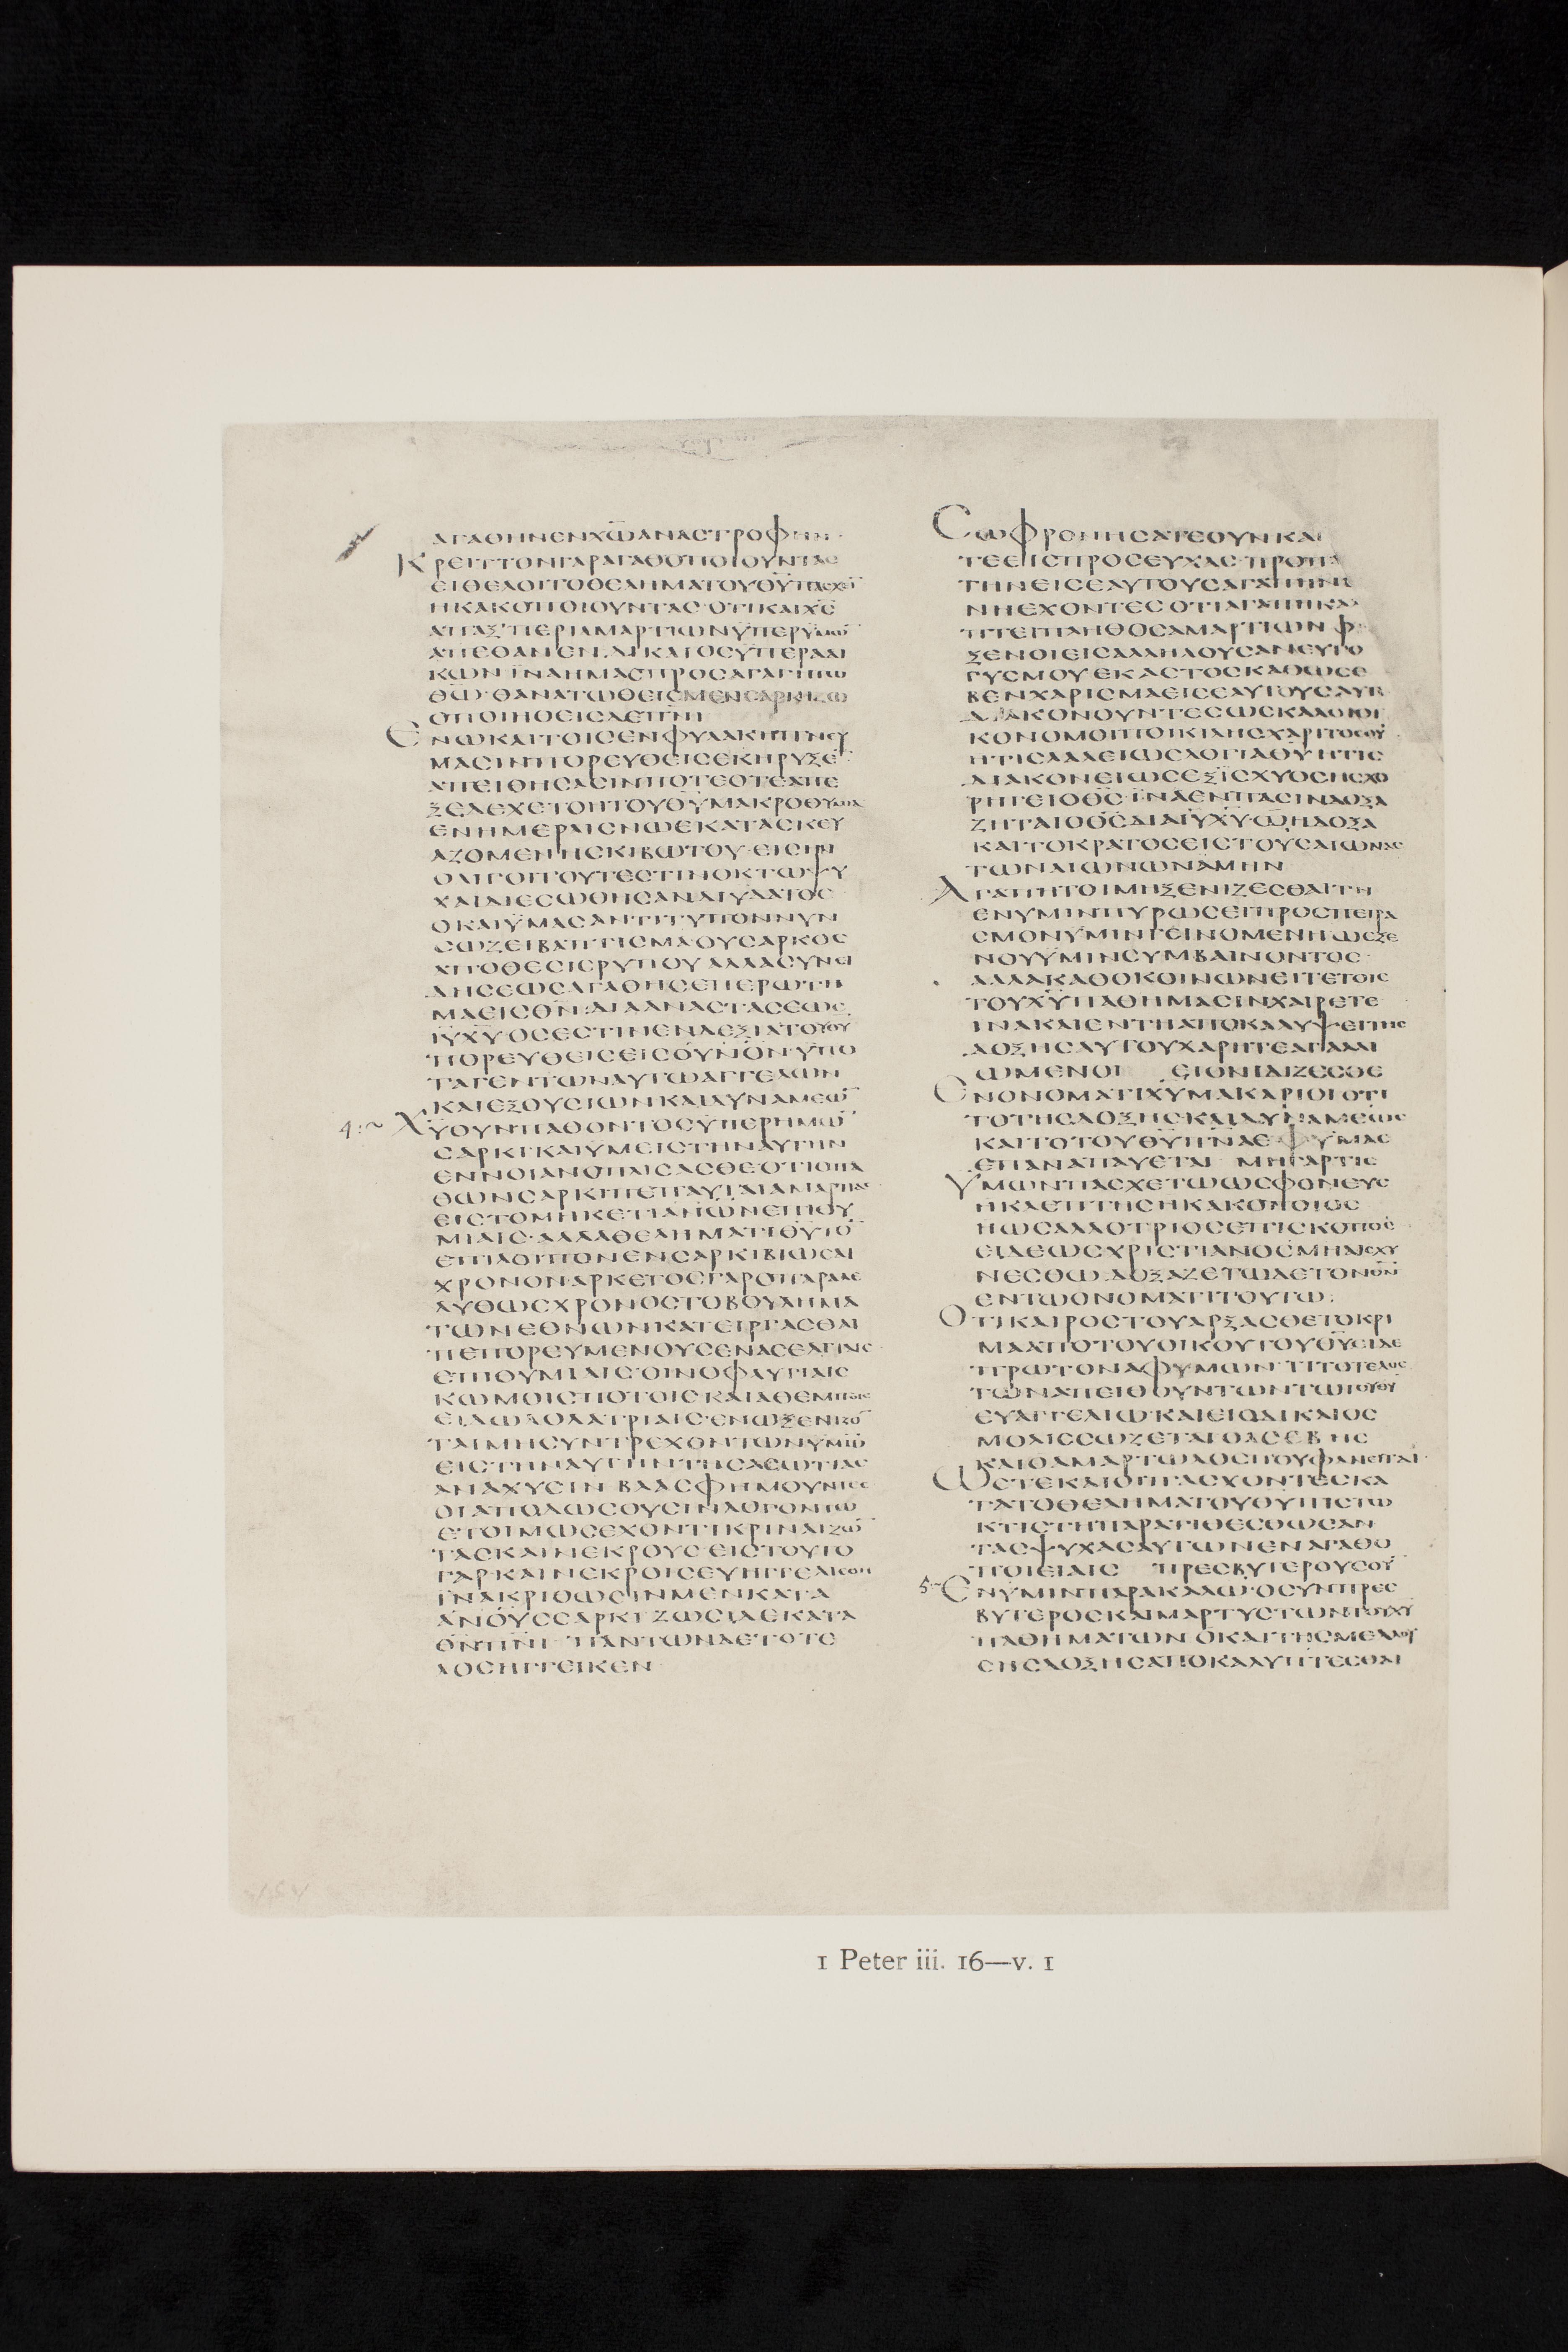 ΑΓΑΘΗΝΕΝΧΩ̅ΑΝΑϹΤΡΟΦΗΝ
ΚΡΕΙΤΤΟΝΓΑΡΑΓΑΘΟΠΟΙΟΥΝΤΑϹ
ΕΙΘΕΛΟΙΤΟΘΕΛΗΜΑΤΟΥΘ̅Υ̅ΠΑϹΧΕΙ̅
ΗΚΑΚΟΠΟΙΟΥΝΤΑϹ·ΟΤΙΚΑΙΧ̅Ϲ̅
ΑΠΑΞ·ΠΕΡΙΑΜΑΡΤΙΩΝΫΠΕΡΫΜΩ̅
ΑΠΕΘΑΝΕΝ·ΔΙΚΑΙΟϹΫΠΕΡΑΔΙ
ΚΩΝΪΝΑΗΜΑϹΠΡΟϹΑΓΑΓΗΤΩ
Θ̅Ω̅·ΘΑΝΑΤΩΘΕΙϹΜΕΝϹΑΡΚΙΖΩ
ΟΠΟΙΗΘΕΙϹΔΕΠ̅Ν̅Ι̅
ΕΝΩΚΑΙΤΟΙϹΕΝΦΥΛΑΚΗΠΝΕΥ
ΜΑϹΙΝΠΟΡΕΥΘΕΙϹΕΚΗΡΥΞΕ̅
ΑΠΕΙΘΗϹΑϹΙΝΠΟΤΕΟΤΕΑΠΕ
ΞΕΔΕΧΕΤΟΗΤΟΥΘ̅Υ̅ΜΑΚΡΟΘΥΜΙΑ
ΕΝΗΜΕΡΑΙϹΝΩΕΚΑΤΑϹΚΕΥ
ΑΖΟΜΕΝΗϹΚΙΒΩΤΟΥ·ΕΙϹΗΝ
ΟΛΙΓΟΙΤΟΥΤΕϹΤΙΝΟΚΤΩΨΥ
ΧΑΙΔΙΕϹΩΘΗϹΑΝΔΙΥΔΑΤΟϹ
ΟΚΑΙΫΜΑϹΑΝΤΙΤΥΠΟΝΝΥΝ
ϹΩΖΕΙΒΑΠΤΙϹΜΑΟΥϹΑΡΚΟϹ
ΑΠΟΘΕϹΙϹΡΥΠΟΥΑΛΛΑϹΥΝΕΙ
ΔΗϹΕΩϹΑΓΑΘΗϹΕΠΕΡΩΤΗ
ΜΑΕΙϹΘ̅Ν̅·ΔΙΑΑΝΑϹΤΑϹΕΩϹ
Ι̅Υ̅Χ̅Υ̅·ΟϹΕϹΤΙΝΕΝΔΕΞΙΑΤΟΥΘ̅Υ̅
ΠΟΡΕΥΘΕΙϹΕΙϹΟΥ̅Ν̅Ο̅Ν̅·ΫΠΟ
ΤΑΓΕΝΤΩΝΑΥΤΩΑΓΓΕΛΩΝ
ΚΑΙΕΞΟΥϹΙΩΝΚΑΙΔΥΝΑΜΕΩ̅
4:~ Χ̅Υ̅ΟΥΝΠΑΘΟΝΤΟϹΫΠΕΡΗΜΩ̅
ϹΑΡΚΙΚΑΙΫΜΕΙϹΤΗΝΑΥΤΗΝ
ΕΝΝΟΙΑΝΟΠΛΙϹΑϹΘΕΟΤΙΟΠΑ
ΘΩΝϹΑΡΚΙΠΕΠΑΥΤΑΙΑΜΑΡΤΙΑϹ
ΕΙϹΤΟΜΗΚΕΤΙΑ̅Ν̅Ω̅Ν̅ΕΠΙΘΥ
ΜΙΑΙϹ·ΑΛΛΑΘΕΛΗΜΑΤΙΘ̅Υ̅ΤΟ̅
ΕΠΙΛΟΙΠΟΝΕΝϹΑΡΚΙΒΙΩϹΑΙ
ΧΡΟΝΟΝ·ΑΡΚΕΤΟϹΓΑΡΟΠΑΡΕΛΗ
ΛΥΘΩϹΧΡΟΝΟϹΤΟΒΟΥΛΗΜΑ
ΤΩΝΕΘΝΩΝΚΑΤΕΙΡΓΑϹΘΑΙ
ΠΕΠΟΡΕΥΜΕΝΟΥϹΕΝΑϹΕΛΓΙΑΙϹ
ΕΠΙΘΥΜΙΑΙϹ·ΟΙΝΟΦΛΥΓΙΑΙϹ
ΚΩΜΟΙϹΠΟΤΟΙϹΚΑΙΑΘΕΜΙΤΟΙϹ
ΕΙΔΩΛΟΛΑΤΡΙΑΙϹ·ΕΝΩΞΕΝΙΖΟ̅
ΤΑΙΜΗϹΥΝΤΡΕΧΟΝΤΩΝΫΜΩ̅
ΕΙϹΤΗΝΑΥΤΗΝΤΗϹΑϹΩΤΙΑϹ
ΑΝΑΧΥϹΙΝ ΒΛΑϹΦΗΜΟΥΝΤΕϹ
ΟΙΑΠΟΔΩϹΟΥϹΙΝΛΟΓΟΝΤΩ
ΕΤΟΙΜΩϹΕΧΟΝΤΙΚΡΙΝΑΙΖΩ̅
ΤΑϹΚΑΙΝΕΚΡΟΥϹ·ΕΙϹΤΟΥΤΟ
ΓΑΡΚΑΙΝΕΚΡΟΙϹΕΥΗΓΓΕΛΙϹΘΗ
ΪΝΑΚΡΙΘΩϹΙΝΜΕΝΚΑΤΑ
Α̅Ν̅Ο̅Υ̅Ϲ̅ϹΑΡΚΙΖΩϹΙΔΕΚΑΤΑ
Θ̅Ν̅Π̅Ν̅Ι̅ ΠΑΝΤΩΝΔΕΤΟΤΕ
ΛΟϹΗΓΓΕΙΚΕΝ
ϹΩΦΡΟΝΗϹΑΤΕΟΥΝΚΑΙ
ΤΕΕΙϹΠΡΟϹΕΥΧΑϹ·ΠΡΟΠΑ
ΤΗΝΕΙϹΕΑΥΤΟΥϹΑΓΑΠΗΝΕ
ΝΗΕΧΟΝΤΕϹΟΤΙΑΓΑΠΗΚΑ
ΠΤΕΙΠΛΗΘΟϹΑΜΑΡΤΙΩΝΦ
ΞΕΝΟΙΕΙϹΑΛΛΗΛΟΥϹΑΝΕΥΓΟ
ΓΥϹΜΟΥΕΚΑϹΤΟϹΚΑΘΩϹΕ
ΒΕΝΧΑΡΙϹΜΑΕΙϹΕΑΥΤΟΥϹΑΥΤ
ΔΙΑΚΟΝΟΥΝΤΕϹΩϹΚΑΛΟΙΟΙ
ΚΟΝΟΜΟΙΠΟΙΚΙΛΗϹΧΑΡΙΤΟϹΘ̅Υ̅
ΗΤΙϹΛΑΛΕΙΩϹΛΟΓΙΑΘ̅Υ̅ΗΤΙϹ
ΔΙΑΚΟΝΕΙΩϹΕΞΪϹΧΥΟϹΗϹΧΟ
ΡΗΓΕΙΟΘ̅Ϲ̅·ΪΝΑΕΝΠΑϹΙΝΔΟΞΑ
ΖΗΤΑΙΟΘ̅Ϲ̅ΔΙΑΙ̅Υ̅Χ̅Υ̅·ΩΗΔΟΞΑ
ΚΑΙΤΟΚΡΑΤΟϹΕΙϹΤΟΥϹΑΙΩΝΑϹ
ΤΩΝΑΙΩΝΩΝΑΜΗΝ
ΑΓΑΠΗΤΟΙΜΗΞΕΝΙΖΕϹΘΑΙΤΗ
ΕΝΥΜΙΝΠΥΡΩϹΕΙΠΡΟϹΠΕΙΡΑ
ϹΜΟΝΫΜΙΝΓΕΙΝΟΜΕΝΗΩϹΞΕ
ΝΟΥΫΜΙΝϹΥΜΒΑΙΝΟΝΤΟϹ
ΑΛΛΑΚΑΘΟΚΟΙΝΩΝΕΙΤΕΤΟΙϹ
ΤΟΥΧ̅Υ̅ΠΑΘΗΜΑϹΙΝΧΑΙΡΕΤΕ
ΙΝΑΚΑΙΕΝΤΗΑΠΟΚΑΛΥΨΕΙΤΗϹ
ΔΟΞΗϹΑΥΤΟΥΧΑΡΗΤΕΑΓΑΛΛΙ
ΩΜΕΝΟΙ ΕΙΟΝΙΔΙΖΕϹΘΕ
ΕΝΟΝΟΜΑΤΙΧ̅Υ̅ΜΑΚΑΡΙΟΙΟΤΙ
ΤΟΤΗϹΔΟΞΗϹΚΑΙΔΥΝΑΜΕΩϹ
ΚΑΙΤΟΤΟΥΘ̅Υ̅Π̅Ν̅Α̅ΕΦΫΜΑϹ
ΕΠΑΝΑΠΑΥΕΤΑΙ ΜΗΓΑΡΤΙϹ
ΥΜΩΝΠΑϹΧΕΤΩΩϹΦΟΝΕΥϹ
ΗΚΛΕΠΤΗϹΗΚΑΚΟΠΟΙΟϹ
ΗΩϹΑΛΛΟΤΡΙΟϹΕΠΙϹΚΟΠΟϹ
ΕΙΔΕΩϹΧΡΙϹΤΙΑΝΟϹΜΗΑΙϹΧΥ
ΝΕϹΘΩ·ΔΟΞΑΖΕΤΩΔΕΤΟΝΘ̅Ν̅
ΕΝΤΩΟΝΟΜΑΤΙΤΟΥΤΩ:
ΟΤΙΚΑΙΡΟϹΤΟΥΑΡΞΑϹΘΕΤΟΚΡΙ
ΜΑΑΠΟΤΟΥΟΙΚΟΥΤΟΥΘ̅Υ̅ΕΙΔΕ
ΠΡΩΤΟΝΑΦΥΜΩΝ·ΤΙΤΟΤΕΛΟϹ
ΤΩΝΑΠΕΙΘΟΥΝΤΩΝΤΩΤΟΥΘ̅Υ̅
ΕΥΑΓΓΕΛΙΩ·ΚΑΙΕΙΟΔΙΚΑΙΟϹ
ΜΟΛΙϹϹΩΖΕΤΑΙΟΑϹΕΒΗϹ
ΚΑΙΟΑΜΑΡΤΩΛΟϹΠΟΥΦΑΝΕΙΤΑΙ
ΩϹΤΕΚΑΙΟΙΠΑϹΧΟΝΤΕϹΚΑ
ΤΑΤΟΘΕΛΗΜΑΤΟΥΘ̅Υ̅ΠΙϹΤΩ
ΚΤΙϹΤΗΠΑΡΑΤΙΘΕϹΘΩϹΑΝ
ΤΑϹΨΥΧΑϹΑΥΤΩΝΕΝΑΓΑΘΟ
ΠΟΙΕΙΑΙϹ ΠΡΕϹΒΥΤΕΡΟΥϹΟΥ̅
5~ ΕΝΫΜΙΝΠΑΡΑΚΑΛΩ·ΟϹΥΝΠΡΕϹ
ΒΥΤΕΡΟϹΚΑΙΜΑΡΤΥϹΤΩΝΤΟΥΧ̅Υ̅
ΠΑΘΗΜΑΤΩΝΟΚΑΙΤΗϹΜΕΛΛΟΥ
ϹΗϹΔΟΞΗϹΑΠΟΚΑΛΥΠΤΕϹΘΑΙ
1 Peter iii. 16—v. 1